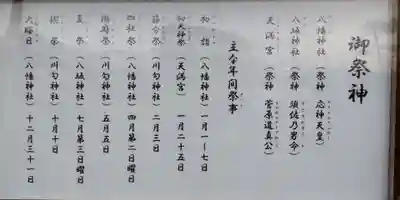 御祭神
八幡神社(祭神 応神天皇)
八坂神社(祭神 須佐乃男命)
天満宮(祭神 菅原道真公)
主な年間祭事
初詣(八幡神社)一月一〜七日
初天神祭(天満宮)一月二十五日
節分祭(川勾神社)二月三日
四社祭(八幡神社)四月第二日曜日
(川勾神社)五月五日
夏祭(八坂神社)七月第三日曜日
(川勾神社)十月十日
大晦日(八幡神社)十二月三十一日